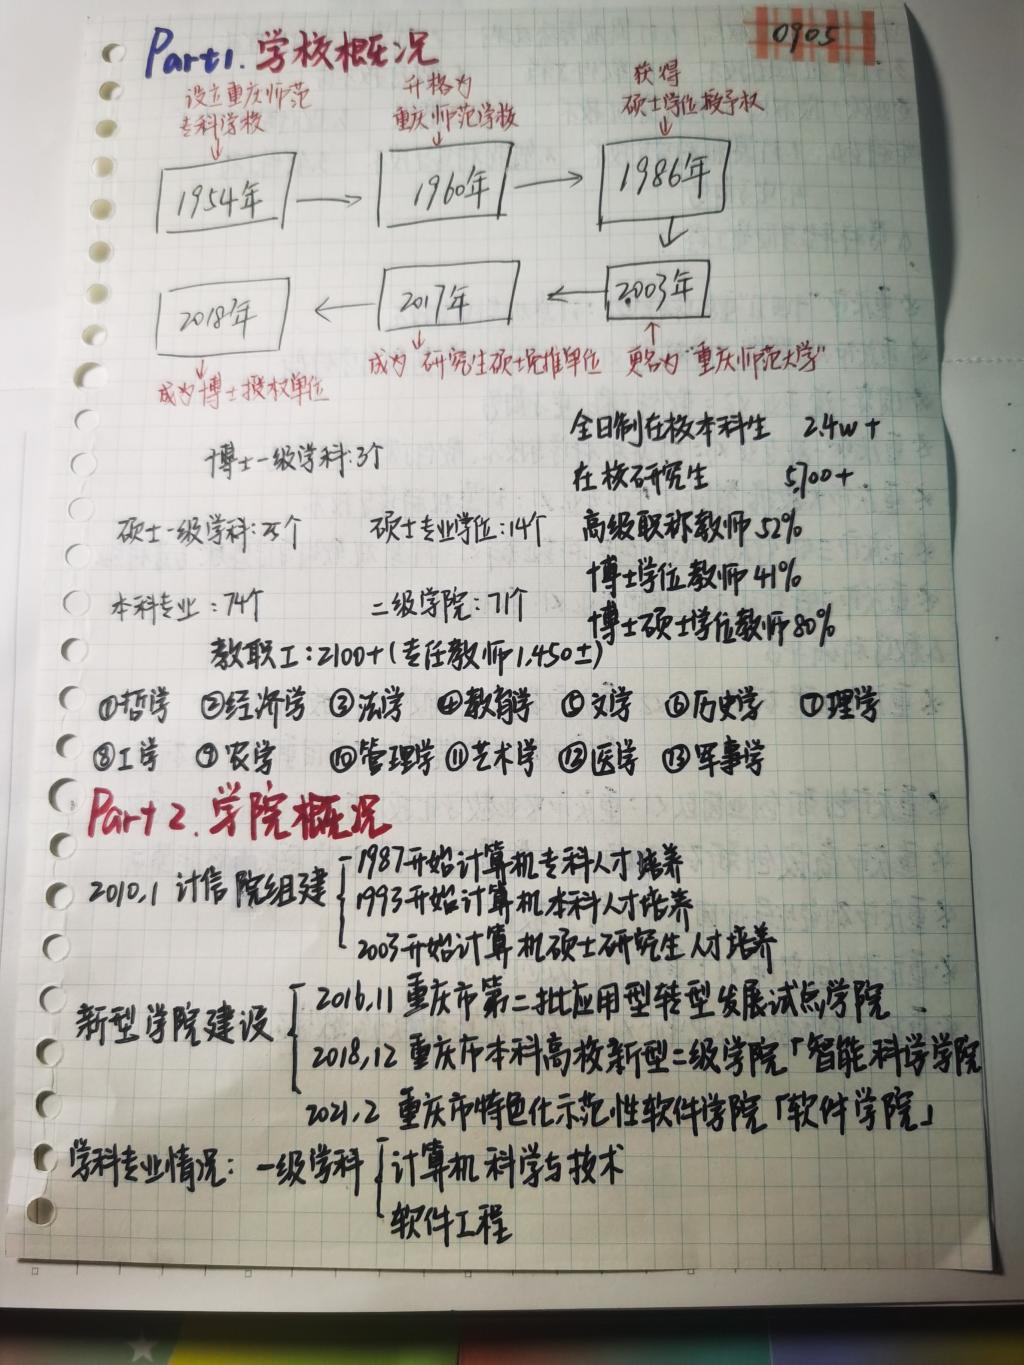 Part1.学校概况
0905
设立重庆师范
专科学校
升格为
重庆师范学校
获得
硕士学位授予权
1954年
1960年
1986年
2018年
2017年
2003年
成为博士授权单位
成为研究生硕士免推单位
更名为“重庆师范大学”
全日制在校本科生 2.4w+
博士一级学科:3个
在校研究生 5,700+
硕士一级学科:25个 硕士专业学位:14个
高级职称教师52%
博士学位教师41%
本科专业:74个 二级学院:71个
博士硕士学位教师80%
教职工:2100+(专任教师1,450±)
①哲学 ②经济学 ③法学 ④教育学 ⑤文学 ⑥历史学 ⑦理学
⑧工学 ⑨农学 ⑩管理学 ⑪艺术学 ⑫医学 ⑬军事学
Part2.学院概况
2010.1 计信院组建
1987开始计算机专科人才培养
1993开始计算机本科人才培养
2003开始计算机硕士研究生人才培养
新型学院建设
2016.11 重庆市第二批应用型转型发展试点学院
2018.12 重庆市本科高校新型二级学院「智能科学学院
2021.2 重庆市特色化示范性软件学院「软件学院」
学科专业情况: 一级学科
计算机科学与技术
软件工程